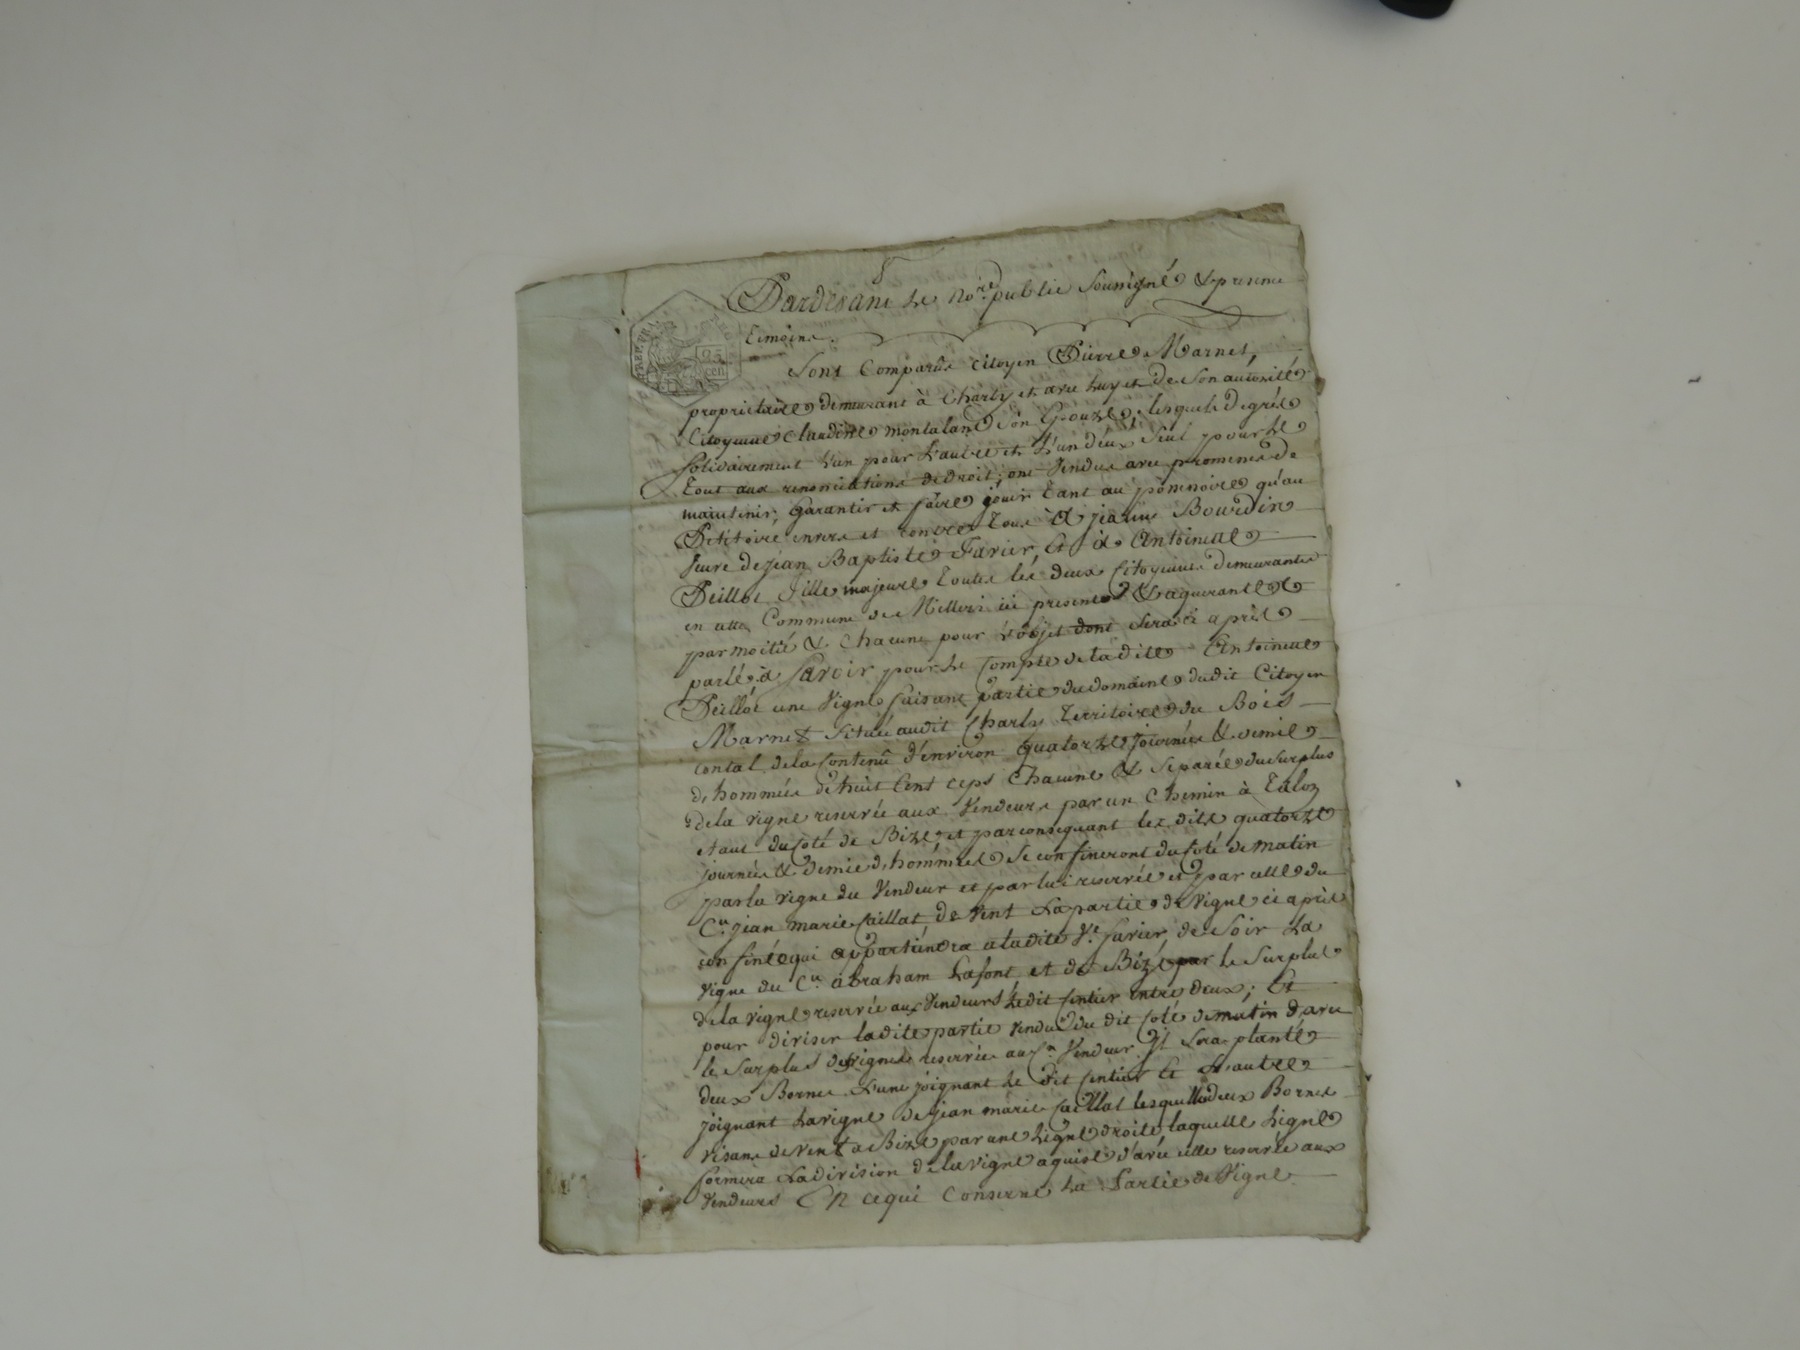 Pardevant Le No.re public Soussigné & presence
témoins.
REP. FRA.
25
cen.
Sont Comparûs Citoyen Pierre Marnet,
propriétaire demeurant à Charly et avec Luy et De Son autorité
Citoyenne Claudine Montaland Son Epouze, lesquels de gré
Solidairement L'un pour L'autre et L'un d'eux Seul pour Le
Tout aux renonciations de droit, ont Vendus avec promesse de
maintenir, Garantir et faire jouir Tant au possessoire qu'au
Petitoire envers et contre Tous à jeanne Bourdin
veuve de jean Baptiste Favier, et à Antoinette
Peillot fille majeure Toutes les deux Citoyennes demeurantes
en cette Commune de Millery ici presentes & aquerantes
par moitié & Chacune pour l'objet dont Sera ci après
parlé, à Savoir pour Le Compte de ladite Antoinette
Peillot une Vigne faisant partie du domaine dudit Citoyen
Marnet Située audit Charly Territoire du Bois
contal de la Contenû d'environ quatorze journées & demie
d'hommées de huit Cent ceps Chacune & Séparée du Surplus
de la vigne reservée aux Vendeurs par un Chemin à Talon
étant du Coté de Bize, et par conséquant les dites quatorze
journées & demie d'hommées Se confineront du Coté de matin
par la vigne du Vendeur et par lui reservée et par celle du
C.n jean marie Caillat, de Vent La partie de Vigne ci après
confinée qui appartiendra a ladite V.e favier, de Soir La
Vigne du C.n abraham Lafont et de Bize par le Surplus
de la vigne reservée aux Vendeurs Ledit Sentier entre deux; Et
pour diviser ladite partie Vendu du dit Coté de matin d'avec
le Surplus de vignes reservée au C.n Vendeur Il Sera planté
deux Bornes L'une joignant Le dit Sentier et L'autre
joignant La vigne de jean marie Caillat lesquelles deux Bornes
visans de Vent a Bize par une Ligne droite laquelle Ligne
formera La division de la vigne aquise d'avec celle reservée aux
Vendeurs En ce qui Conserne La Partie de Vigne